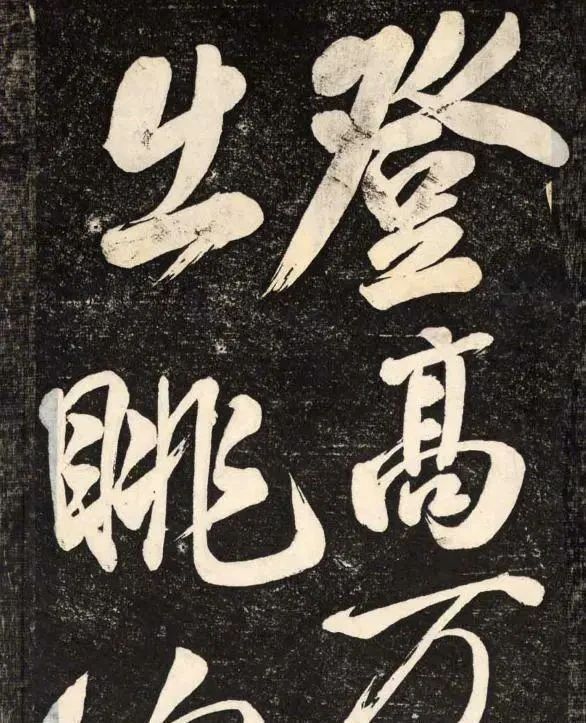 登高万
出眺